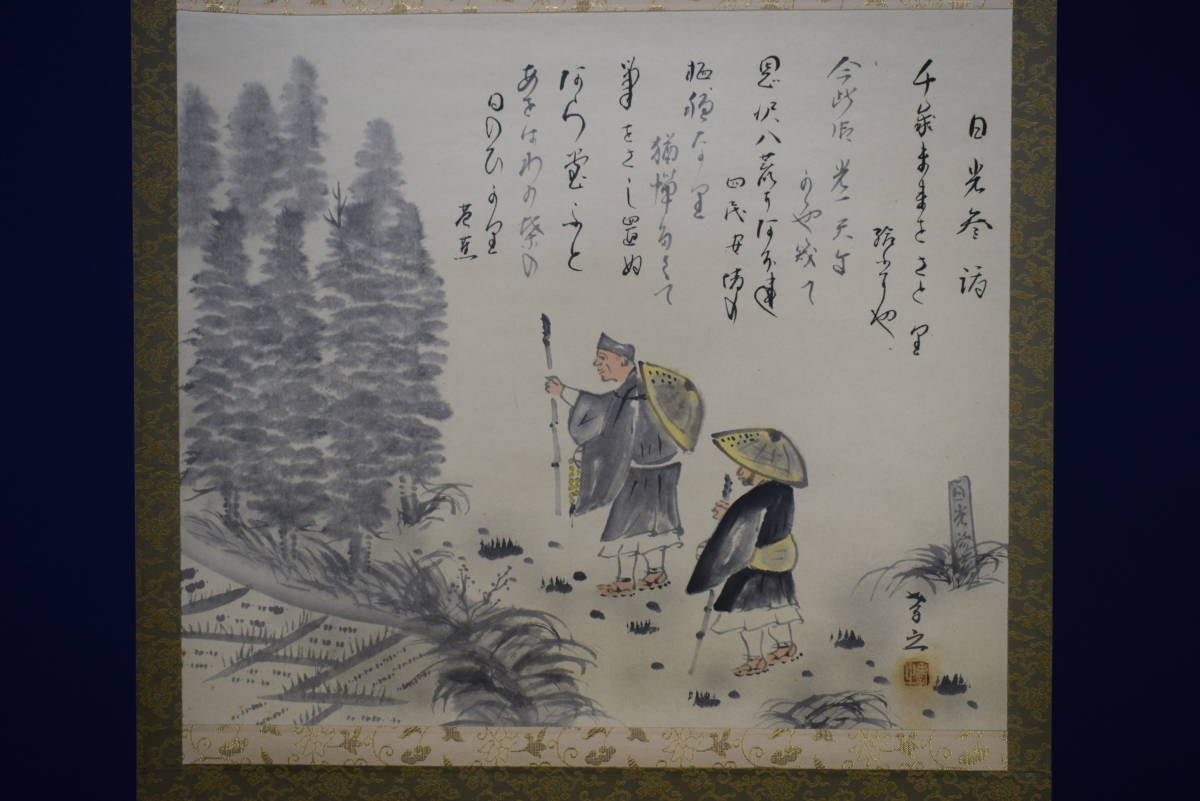 日光参詣
千歳未来をさとり
給ふにや
今此御光一天に
かゝやきて
恩沢八荒にあふれ
四民安堵の
栖穏なり
猶憚多くて
筆をさし置ぬ
あらたふと
あをはわか葉の
日のひかり
芭蕉
日光路